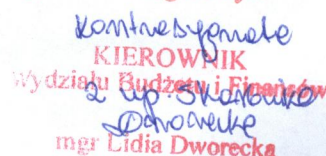 Kontrasygnata
KIEROWNIK
Wydziału Budżetu i Finansów
z up. Skarbnika
Dworecka
mgr Lidia Dworecka